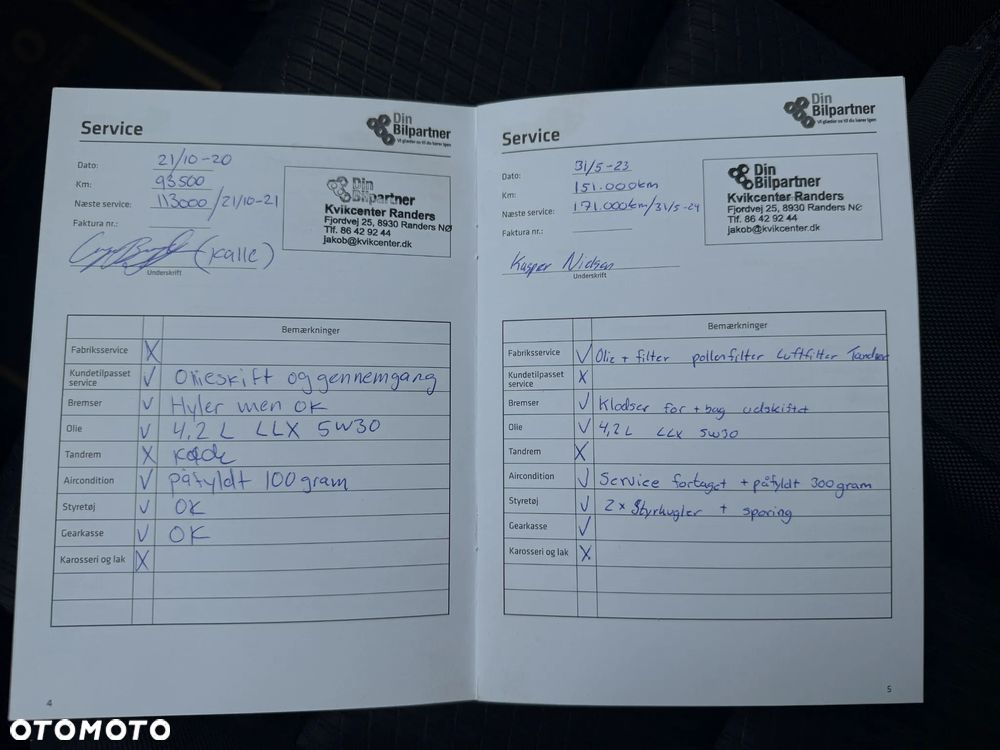 Service
Din Bilpartner
Vi glæder os til du kører igen
Dato: 21/10-20
Km: 93500
Næste service: 113000/21/10-21
Faktura nr.:
(Kalle)
Underskrift
Din
Bilpartner
Kvikcenter Randers
Fjordvej 25, 8930 Randers NØ
Tlf. 86 42 92 44
jakob@kvikcenter.dk
Bemærkninger
Fabriksservice X
Kundetilpasset service √ Olieskift og gennemgang
Bremser √ Hyler men OK
Olie √ 4,2 L LLX 5W30
Tandrem X
Aircondition √ påfyldt 100 gram
Styretøj √ OK
Gearkasse √ OK
Karosseri og lak X
4
Service
Din Bilpartner
Vi glæder os til du kører igen
Dato: 31/5-23
Km: 151.000km
Næste service: 171.000km/31/5-24
Faktura nr.:
Kasper Nielsen
Underskrift
Din
Bilpartner
Kvikcenter Randers
Fjordvej 25, 8930 Randers NØ
Tlf. 86 42 92 44
jakob@kvikcenter.dk
Bemærkninger
Fabriksservice √ Olie + filter pollenfilter Luftfilter
Kundetilpasset service X
Bremser √ Klodser for + bag udskiftet
Olie √ 4,2 L LLX 5W30
Tandrem X
Aircondition √ Service fortaget + påfyldt 300 gram
Styretøj √ 2x Styrkugler + sporing
Gearkasse √
Karosseri og lak X
5
OTOMOTO